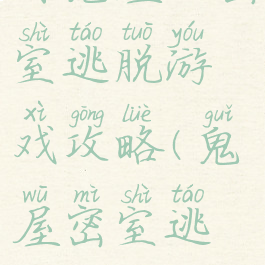 shì táo tuō yóu
室逃脱游
xì gōng lüè guǐ
戏攻略(鬼
wū mì shì táo
屋密室逃